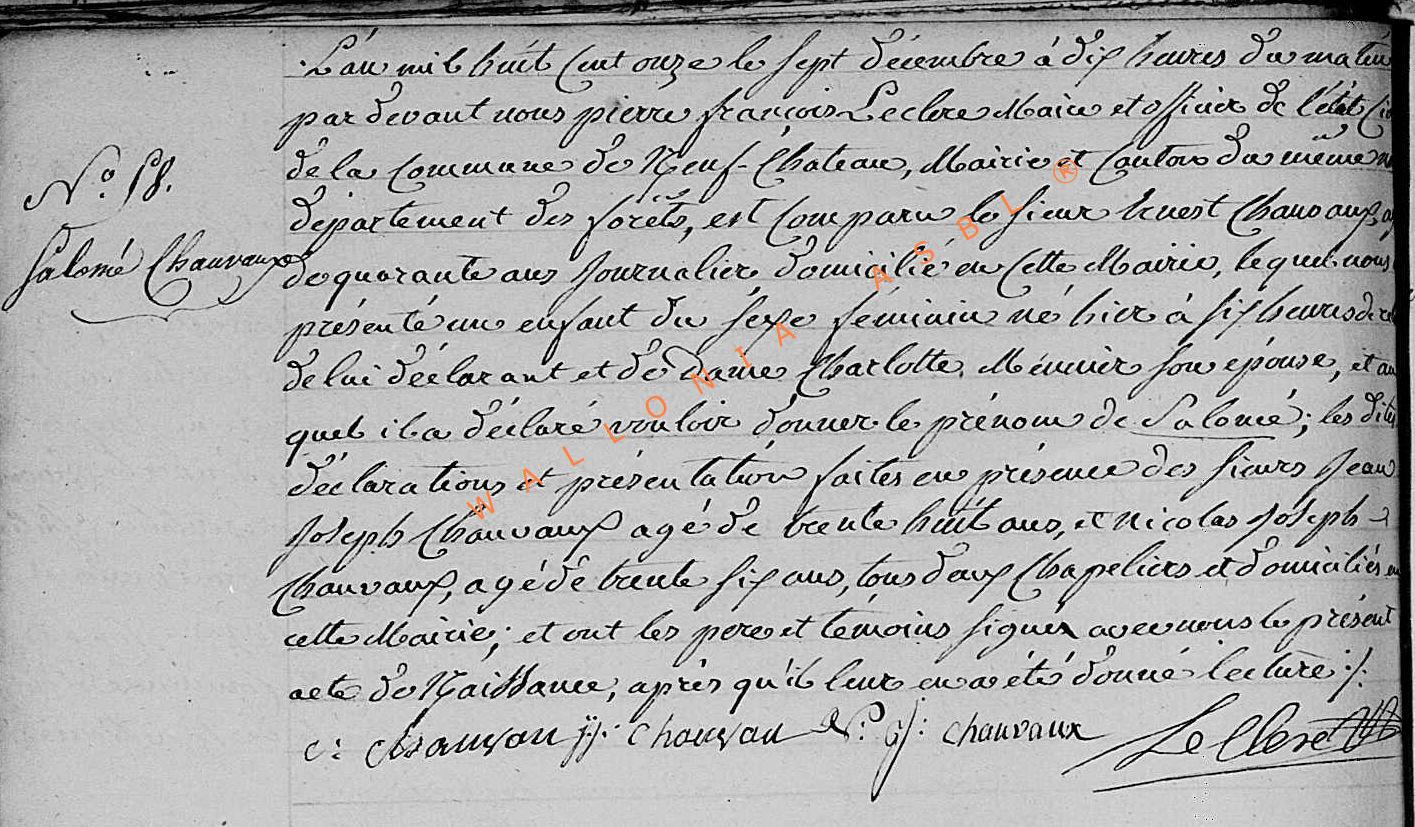 N.o 58.
Salomé Chauvaux
L'an mil huit cent onze le sept décembre à dix heures du matin
par devant nous pierre françois Leclere Maire et officier de l'état Civ
de la Commune de Neuf-Chateau, Mairie et Canton du même n
département des forêts, est Comparu le sieur Chauvaux, ag
de quarante ans Journalier, domicilié en Cette Mairie, lequel nous
présenté un enfant du sexe féminin né hier à six heures de
de lui déclarant et de dame Charlotte Ménnier son épouse, et au
quel il a déclaré vouloir donner le prénom de Salomé; les dites
déclarations et présentation faites en présence des sieurs Jean
Joseph Chauvaux agé de trente huit ans, et nicolas Joseph
Chauvaux, agé de trente six ans, tous deux Chapeliers et domiciliés en
cette Mairie; et ont les pere et témoins signés avec nous le présent
acte de Naissance, après qu'il leur en a été donné lecture ./.
c: chauvau jj: chauvau N: j: chauvaux Leclere
WALLONIA ASBL ®